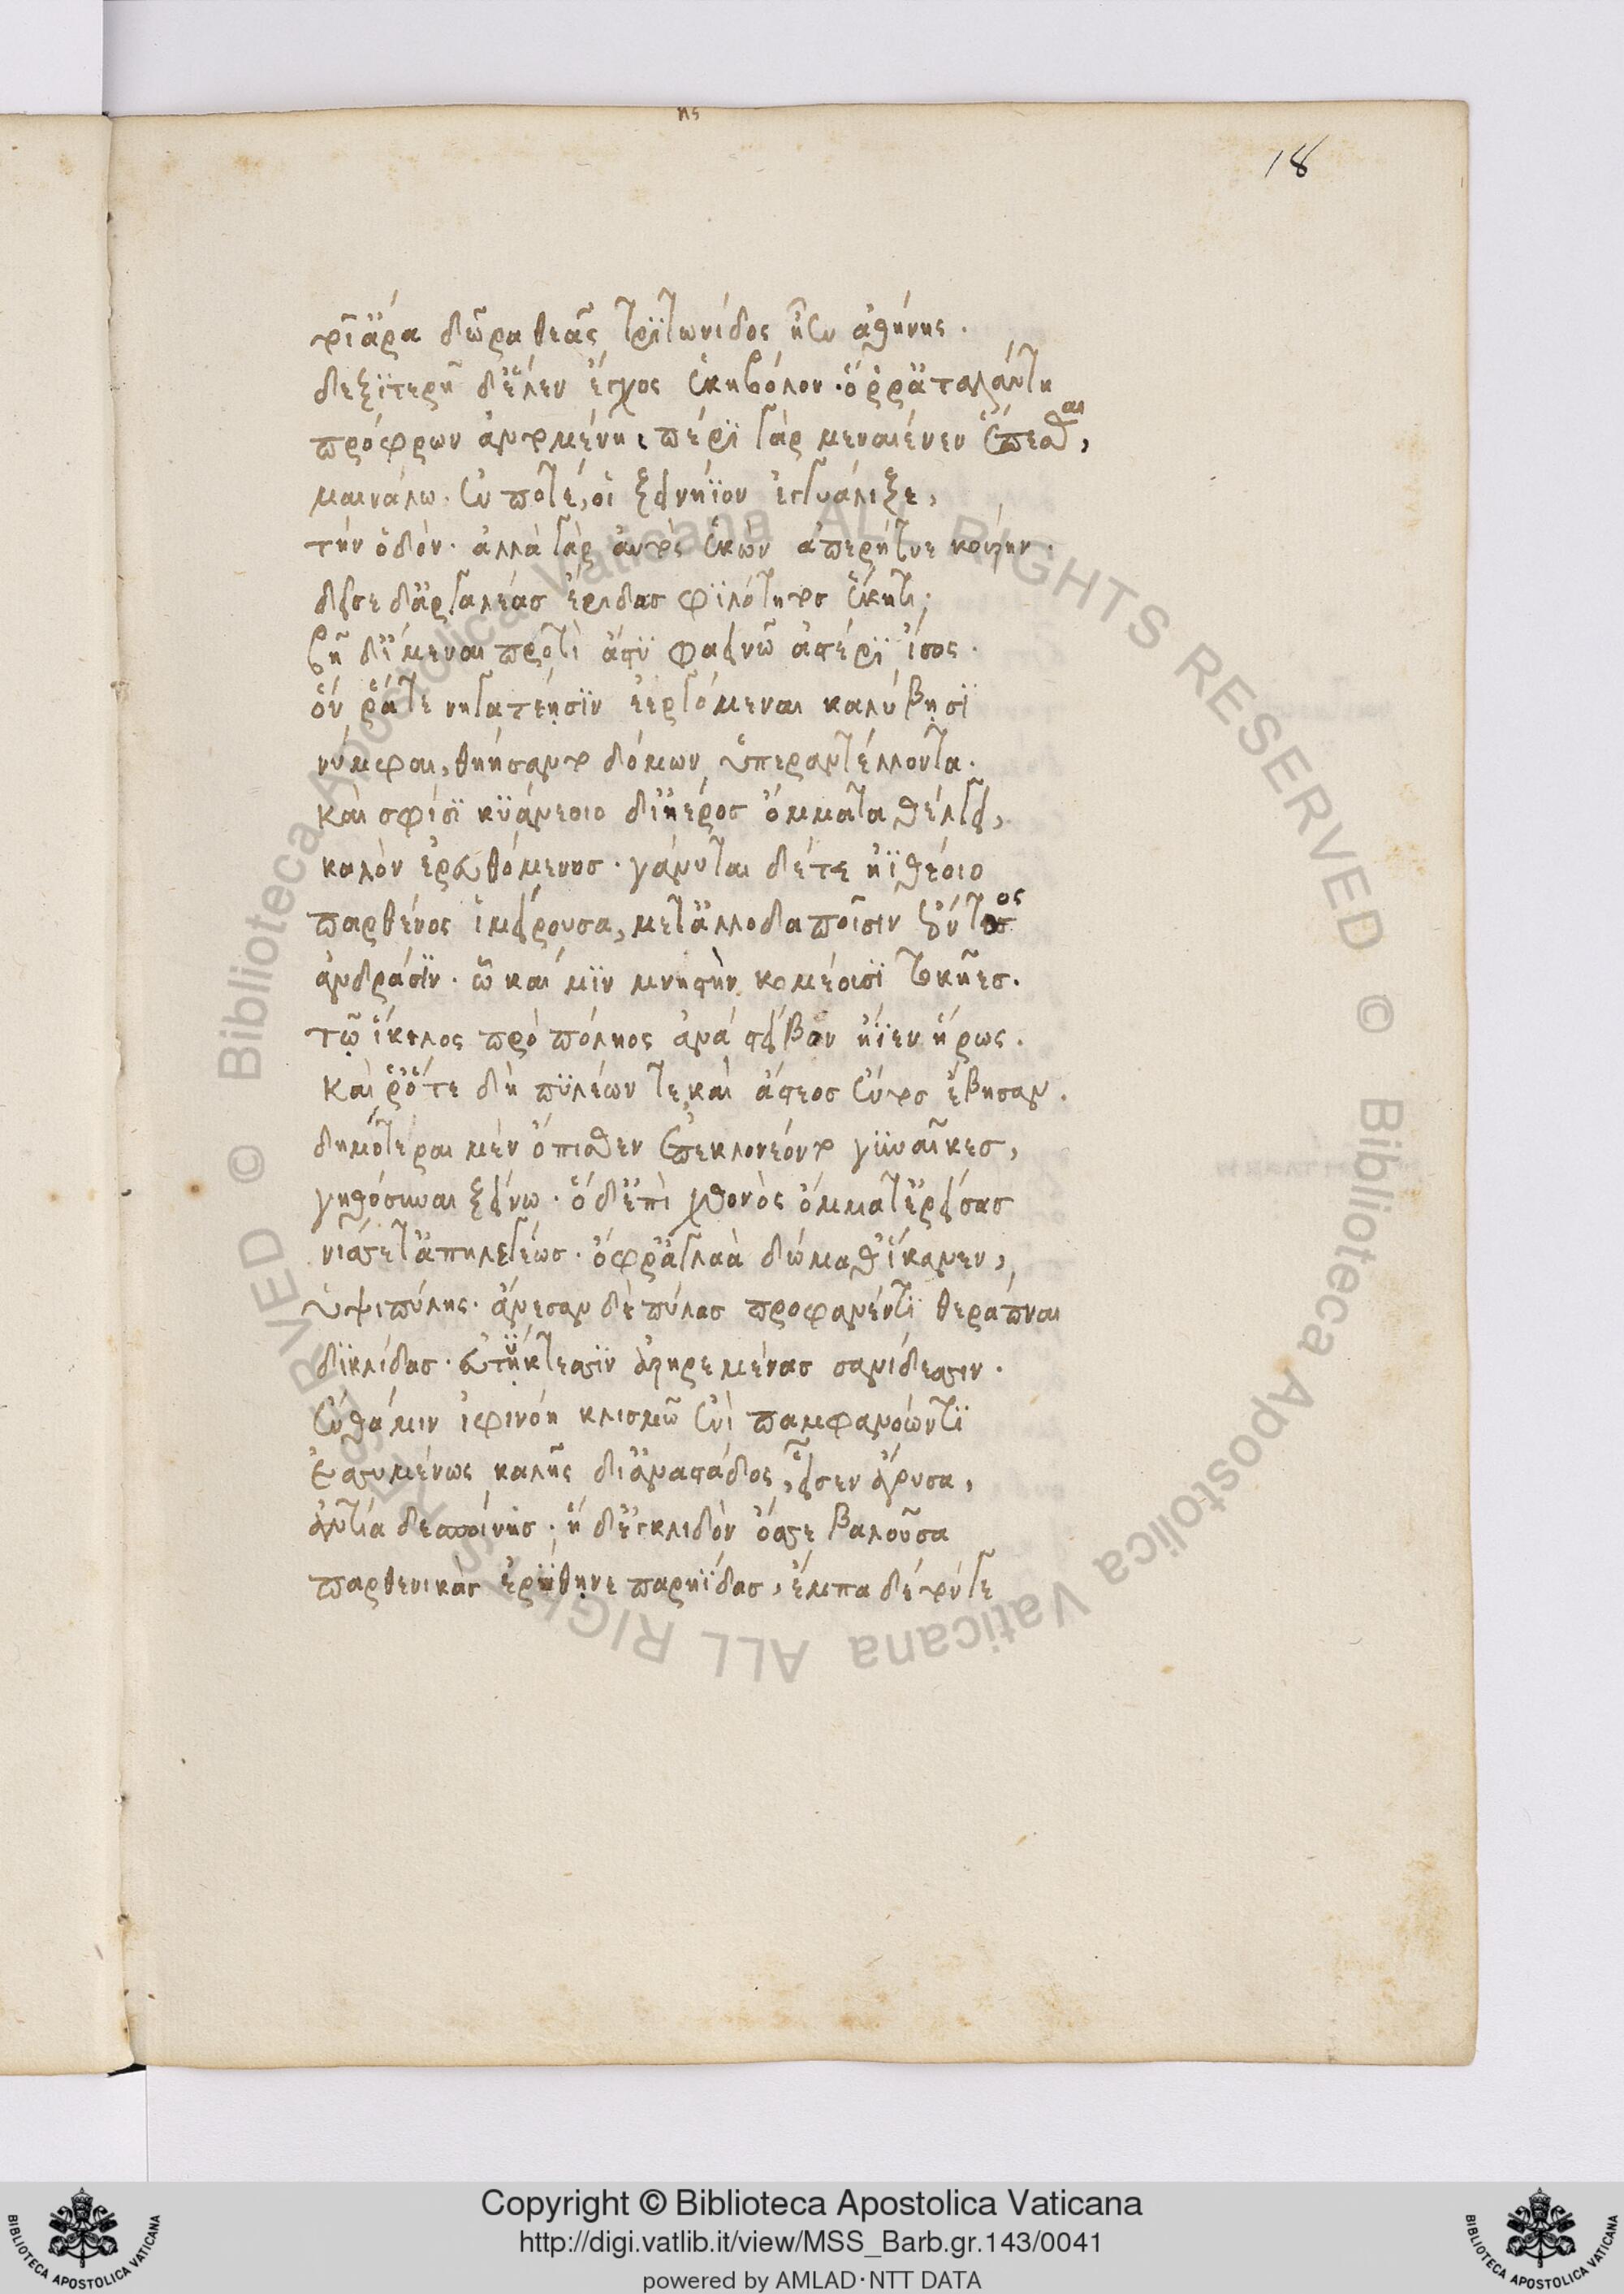 ης
18
τοῖ ἄρα δῶρα θεᾶς τρϊτωνίδος ἦεν ἀθήνης.
δεξϊτερῆ δ' ἕλεν ἔγχος ἑκηβόλον. ὅ ῥρ' ἀταλάντη
πρόφρων ἀντομένη, πέρϊ γὰρ μενέαινεν ἕπεσθαι,
μαινάλω. ἐν ποτέ, οἱ ξεινήϊον ἐγγυάλιξε,
τὴν ὁδόν. ἀλλὰ γὰρ αὐτὸς ἑκὼν ἀπερήτυε κούρην.
δεῖσε δ' ἀργαλέασ ἔριδασ φϊλότητοσ ἕκητι.
βῆ δ' ἴμεναι προτὶ ἄστϋ φαεινῶ ἀστέρϊ ἶσος.
ὅν ῥά τε νηγατέησϊν ἐεργόμεναι καλύβησϊ
νύμφαι, θηήσαντο δόμων ὑπεραντέλλοντα.
καί σφίσϊ κϋάνεοιο δι' ἠέρος ὄμματα θέλγει,
καλὸν ἐρευθόμενοσ. γάνυται δέ τε ἠϊθέοιο
παρθένος ἱμείρουσα, μετ' ἀλλοδαποῖσιν ἐόντος
ἀνδράσϊν. ὧ καί μϊν μνηστὴν κομέοισϊ τοκῆεσ.
τῷ ἴκελος πρὸ πόληος ἀνά στείβον ἤϊεν ἥρως.
καί ῥ' ὅτε δὴ πϋλέων τε, καὶ ἄστεοσ ἐντοσ ἔβησαν.
δημότεραι μὲν ὄπισθεν ἐπεκλονέοντο γϋναῖκεσ,
γηθόσυναι ξείνω. ὁ δ' ἐπὶ χθονὸς ὄμματ' ἐρείσασ
νίσσετ' ἀπηλεγέωσ. ὄφρ' ἀγλαὰ δώμαθ' ἵκανεν,
ὑψιπύλης. ἄνεσαν δὲ πύλασ προφανέντϊ θεράπναι
δϊκλίδασ. εὐτϋκτεσσϊν ἀρηρεμένασ σανίδεσσιν.
ἔνθά μιν ἰφινόη κλισμῶ ἐνὶ παμφανόωντϊ
ἐσσυμένως καλῆς διὰ παστάδος, εἷσεν ἄγουσα,
ἀντία δεσποίνησ. ἡ δ' ἐγκλιδὸν ὄσσε βαλοῦσα
παρθενικὰσ ἐρϋθηνε παρηΐδασ, ἔμπα δέ τόν γε